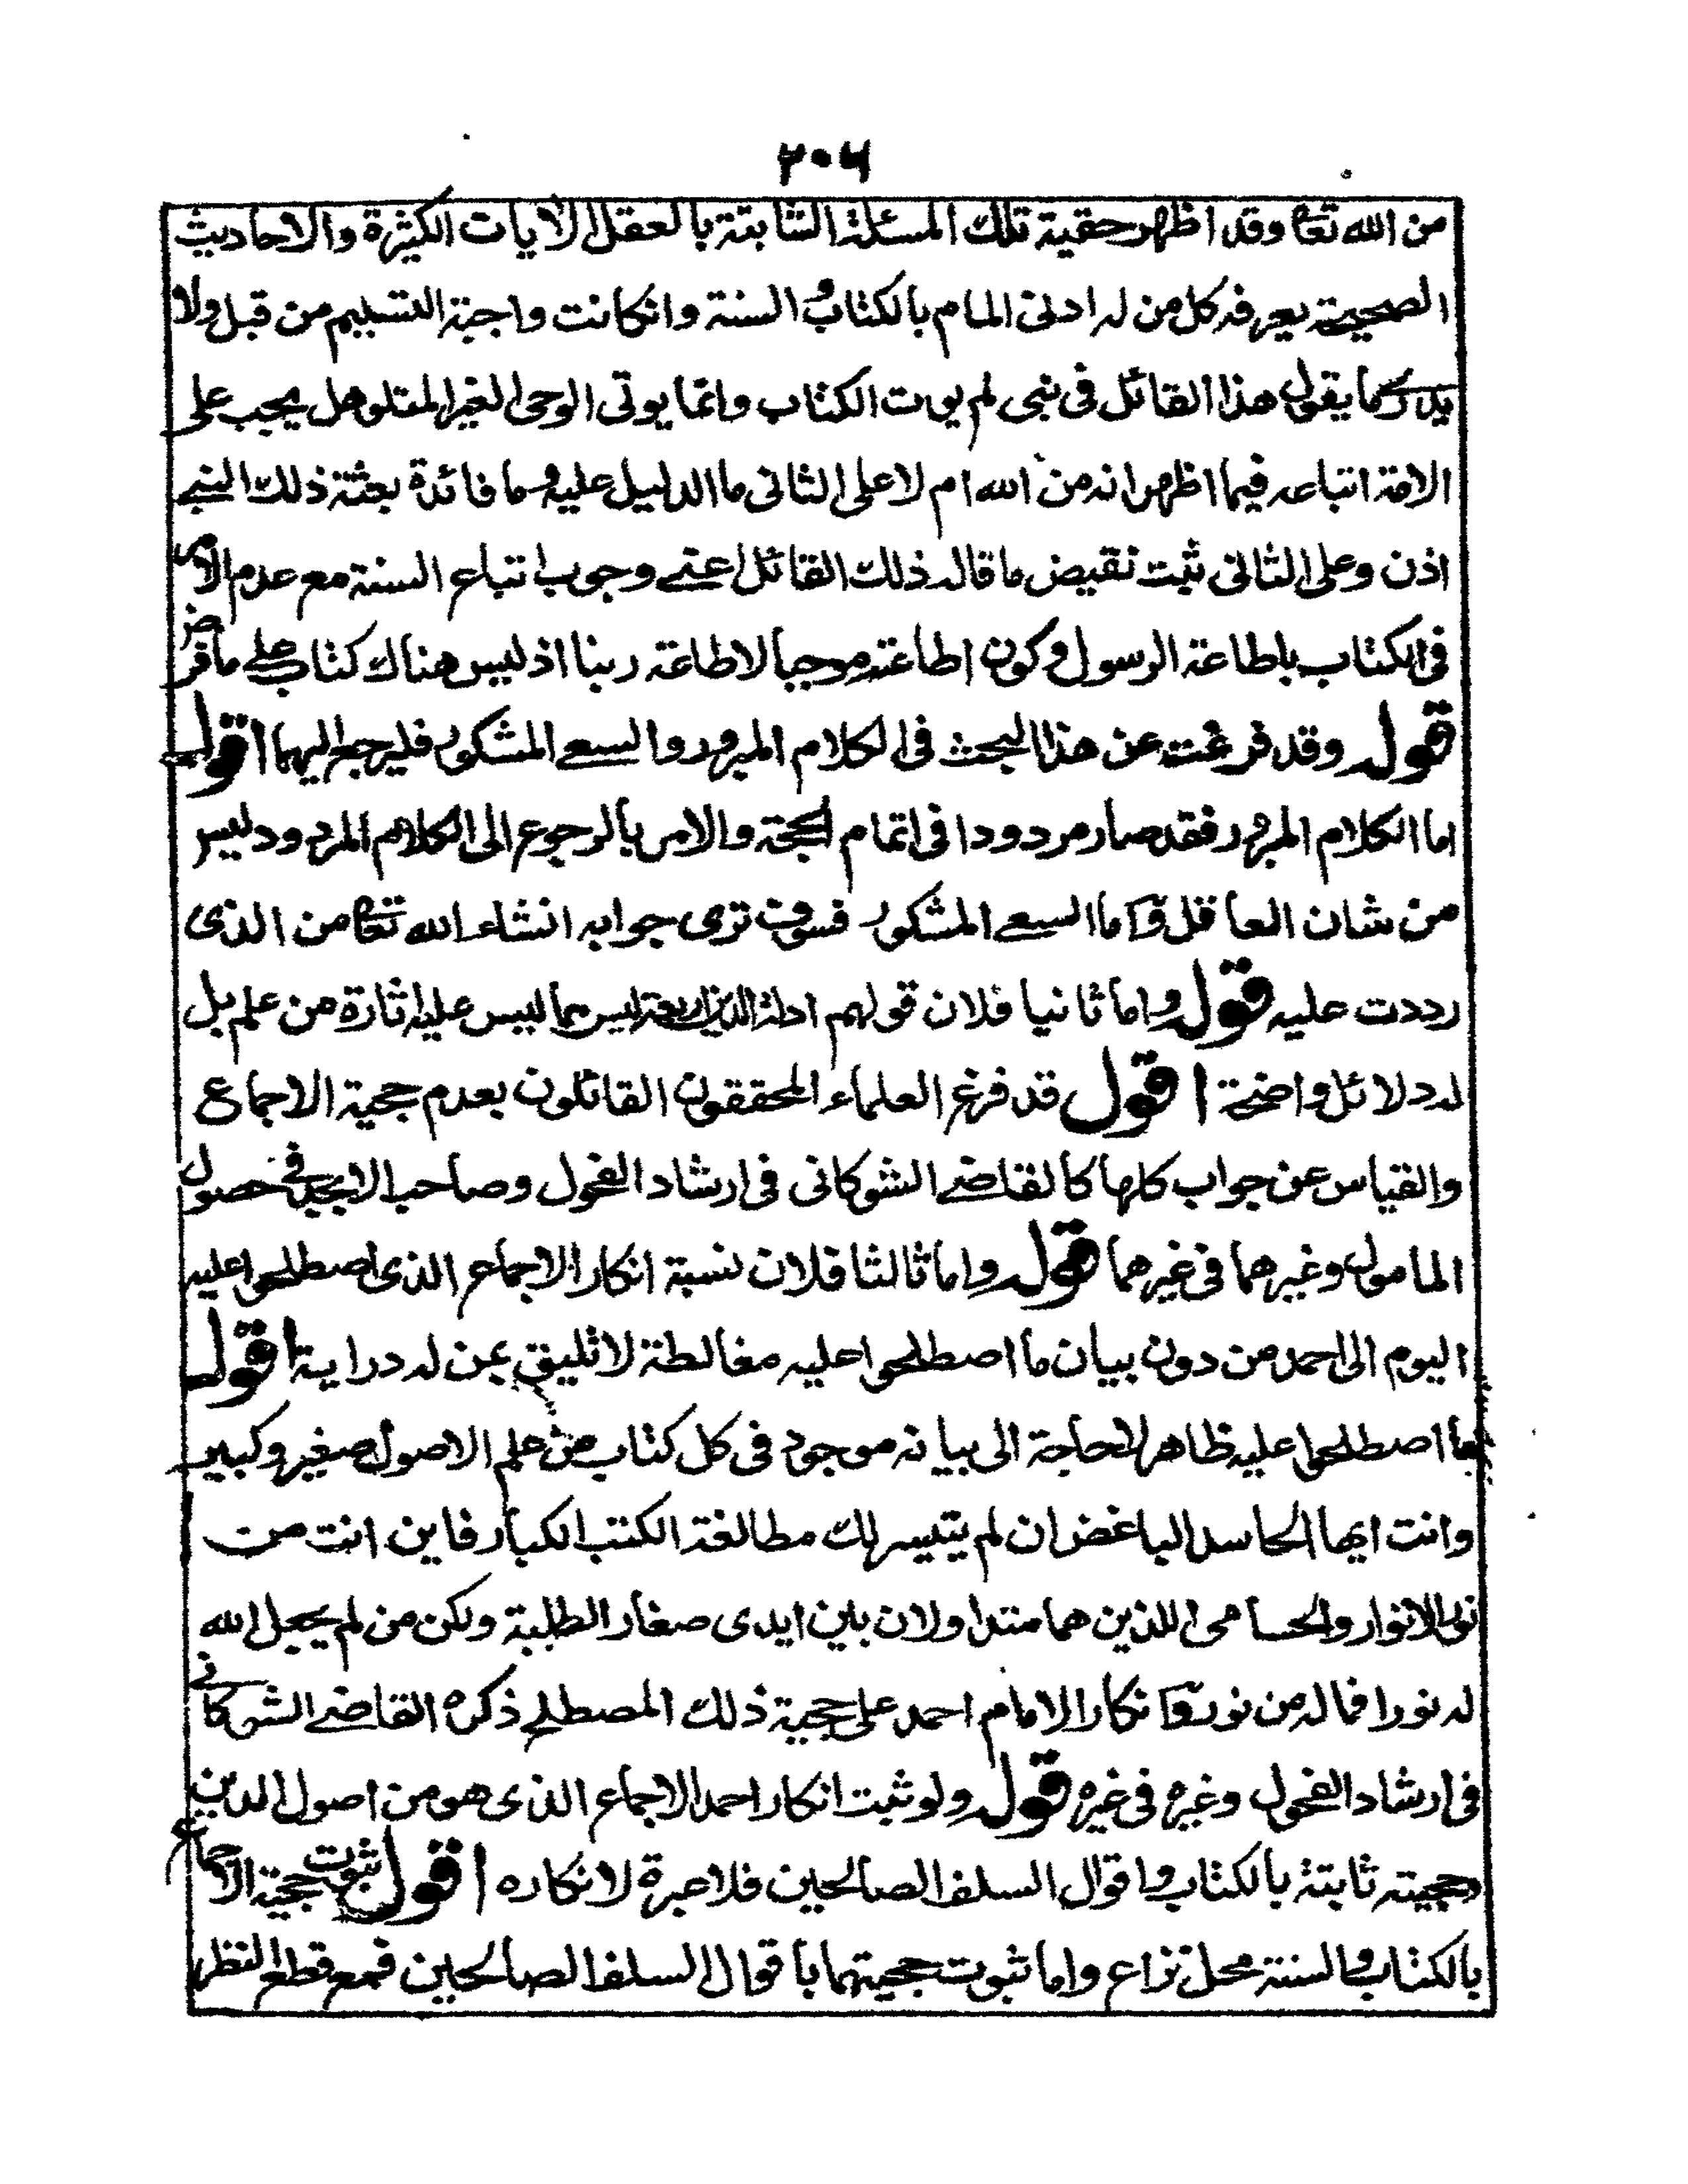 ٢٠٦
من الله تعا وقد اظهر حقية تلك المسئلة الثابتة بالعقل الايات الكثيرة والاحاديث
الصحيحة يعرفه كل من له ادنى المام بالكتاب والسنة وان كانت واجبة التسليم من قبل ولا
يدرى ما يقول هذا القائل فى نبى لم يوت الكتاب وانما يوتى الوحى الغير المتلو هل يجب على
الامة اتباعه فيما اظهر انه من الله ام لا على الثانى ما الدليل عليه وما فائدة بعثة ذلك النبي
اذن وعلى الثانى ثبت نقيض ما قاله ذلك القائل اعنى وجوب اتباع السنة مع عدم الامر
فى الكتاب باطاعة الرسول وكون اطاعته موجبا لاطاعة ربنا اذ ليس هناك كتاب على ما فرض
قوله وقد فرغت عن هذا البحث فى الكلام المبرور والسعى المشكور فليرجع اليهما اقول
اما الكلام المبرور فقد صار مردودا فى اتمام الحجة والامر بالرجوع الى الكلام المردود ليس
من شان العاقل واما السعى المشكور فسوف ترى جوابه انشاء الله تعا من الذى
رددت عليه قوله واما ثانيا فلان قولهم ادلة الدين اربعة ليس مما ليس عليه اثارة من علم بل
له دلائل واضحة اقول قد فرغ العلماء المحققون القائلون بعدم حجية الاجماع
والقياس عن جواب كلها كالقاضى الشوكانى فى ارشاد الفحول وصاحب الابجد فى حصول
المامول وغيرهما فى غيرهما قوله واما ثالثا فلان نسبة انكار الاجماع الذى اصطلحوا عليه
اليوم الى احمد من دون بيان ما اصطلحوا عليه مغالطة لا تليق بمن له دراية اقول
ما اصطلحوا عليه ظاهر لا حاجة الى بيانه موجود فى كل كتاب من علم الاصول صغير وكبير
وانت ايها الحاسد الباغض ان لم يتيسر لك مطالعة الكتب الكبار فاين انت من
نور الانوار والحسامى اللذين هما متداولان بين ايدى صغار الطلبة ولكن من لم يجعل الله
له نورا فما له من نور وانكار الامام احمد على حجية ذلك المصطلح ذكره القاضى الشوكانى
فى ارشاد الفحول وغيره فى غيره قوله ولو ثبت انكار احمد الاجماع الذى هو من اصول الدين
وحجيته ثابتة بالكتاب واقوال السلف الصالحين فلا عبرة لانكاره اقول ثبوت حجية الاجماع
بالكتاب والسنة محل نزاع واما ثبوت حجيتهما باقوال السلف الصالحين فمع قطع النظر